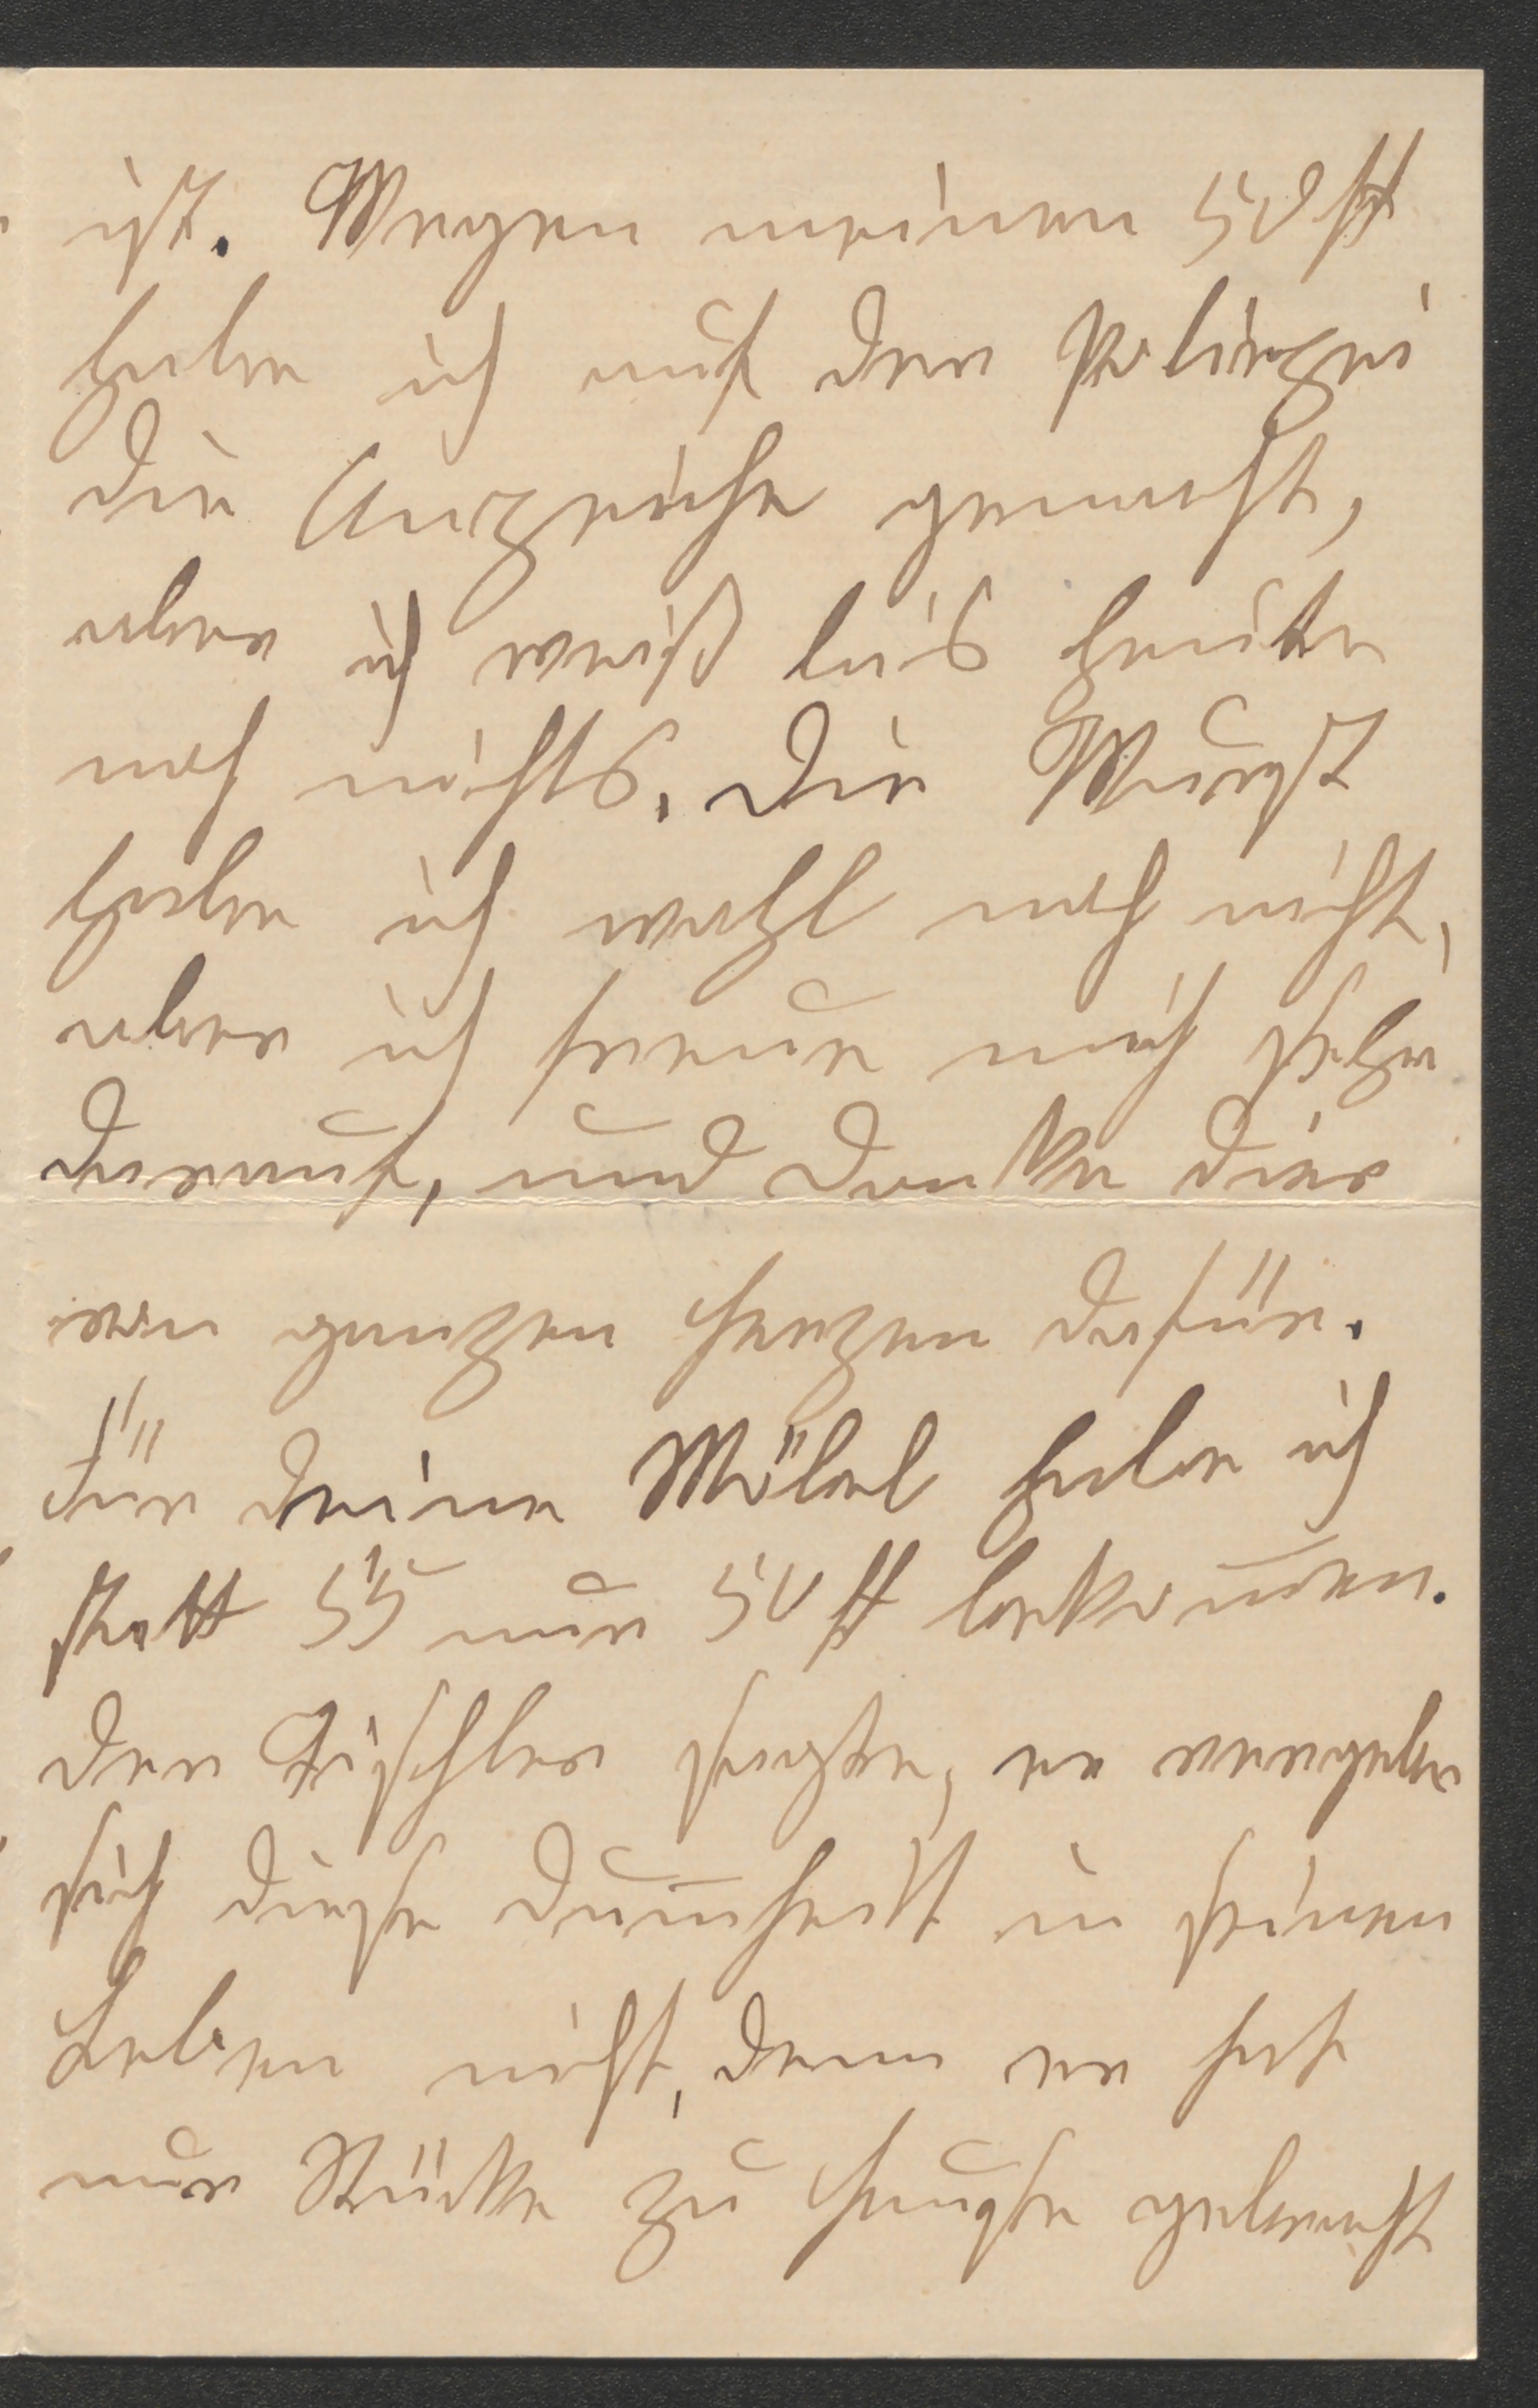 ist. Wegen meinen 50 ff
habe ich auf der Poliezei
die Anzeiche gemacht,
aber ich weiß bis heute
noch nichts. Die Wurst
habe ich wohl noch nicht,
aber ich freue mich sehr
darauf, und danke dir
von ganzen Herzen dafür.
Für deine Möbel habe ich
statt 55 nur 50 ff bekom̅en.
Der Tischler sagte, er vergebe
sich diese Dum̅heitt in seinen
Leben nicht, denn er hat
nur Stücke zu Hause gebracht